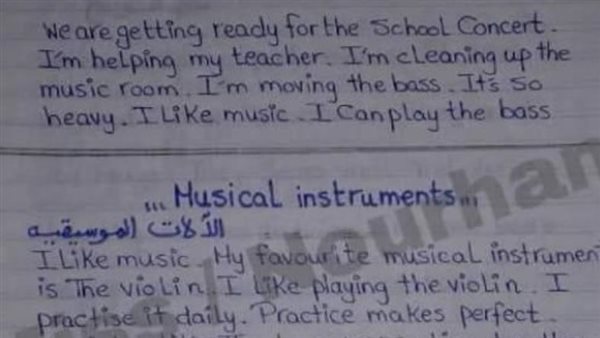 We are getting ready for the School Concert.
I'm helping my teacher. I'm cleaning up the
music room. I'm moving the bass. It's so
heavy. I Like music. I Can play the bass
,,, Musical instruments,,,
الآلات الموسيقيه
I Like music. My favourite musical instrumen
is The violin. I Like playing the violin. I
practise it daily. Practice makes perfect.
Nourhan